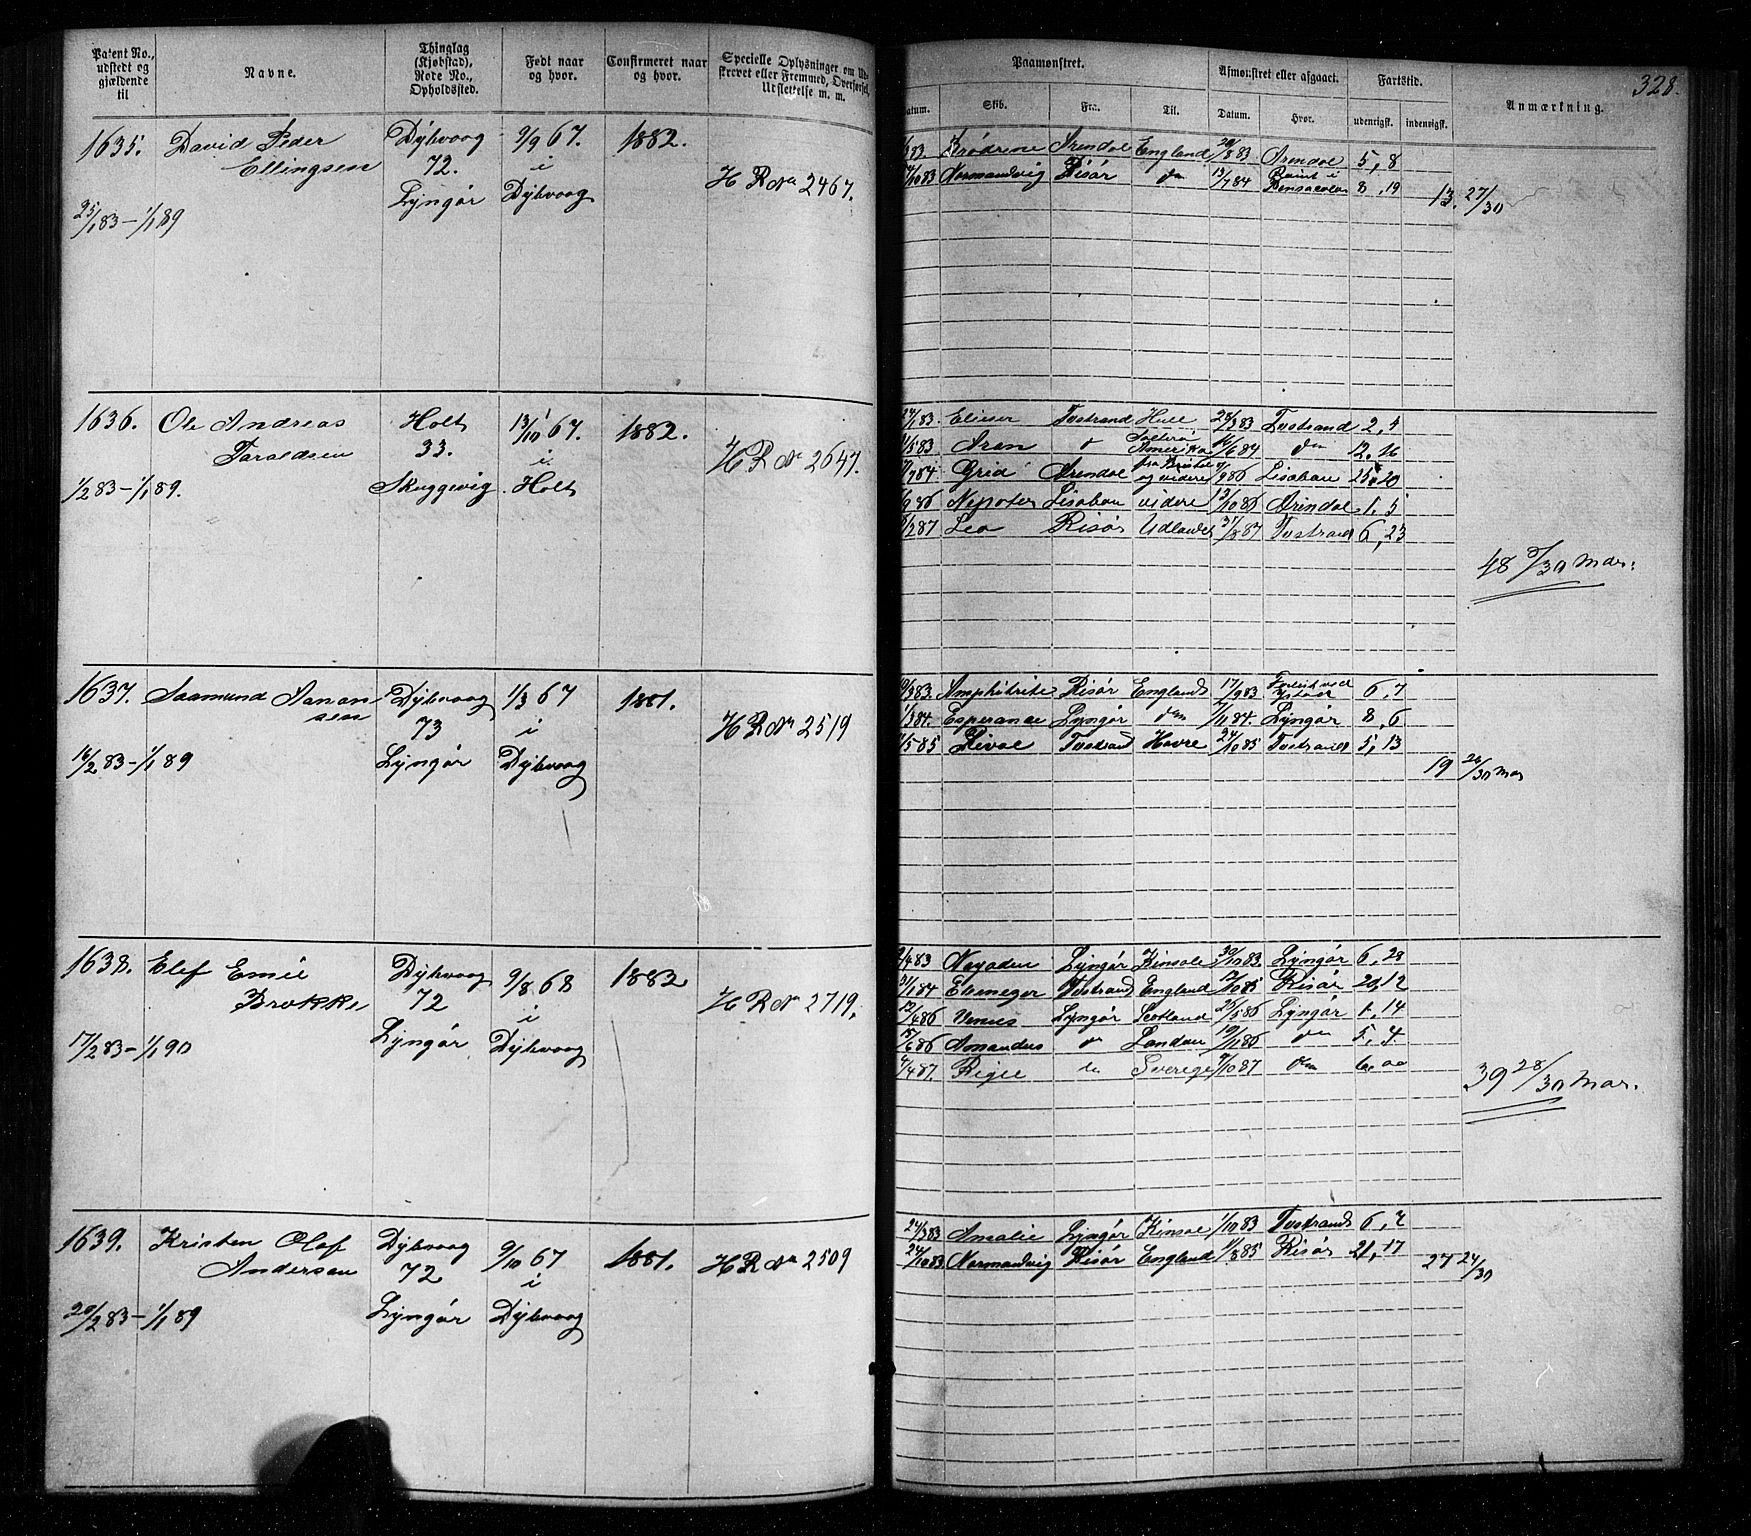 328.
Patent No., udstedt og gjældende til
Navne.
Thinglag (Kjøbstad), Rode No., Opholdssted.
Født naar og hvor.
Confirmeret naar og hvor.
Specielle Oplysninger om Udskrevet eller Fremmed, Overførsel, Udslettelse m. m.
Paamønstret.
Datum. Skib. Fra. Til.
Afmønstret eller afgaaet.
Datum. Hvor.
Fartstid.
udenrigsk. indenrigsk.
Anmærkning.
1635. David Peder Dybvaag 9/9 67. 1882.
Ellingsen 72. i H R No 2467.
25/1 83 – 1/1 89 Lyngør Dybvaag
Brødrene Arendal England 83 Arendal 5, 8
/10 83 Normandvig Risør do 13/7 84 i 8, 19
13. 27/30
1636. Ole Andreas Holt 13/10 67. 1882.
Taraldsen 33. i H R No 2647.
1/2 83 – 1/1 89. Skuggevig Holt
83. Elieser Tvstrand Hull 83 Tvstrand 2, 4
/5 83 Aran Amerika /6 84 do 12, 16
84 Grid Arendal og videre 86 Lisabon 25, 20
/9 86 Nepoter Lisabon videre 13/10 86 Arendal 1, 5
/2 87 Leo Risør Udlandet 31/8 87 Tvstrand 6, 23
48 9/30 mdr.
1637. Saamund Aanon Dybvaag 1/3 67 1881.
sen 73 i H R No 2519
16/2 83 – 1/1 89 Lyngør Dybvaag
/3 83. Amphitrite Risør England 17/9 83 6, 7
84. Esperance Lyngør do 84. Lyngør 8, 6
/5 85 Rival Tvstrand Havre 24/10 85 Tvstrand 5, 13
19 26/30 mdr
1638. Elef Emil Dybvaag 9/8 68 1882
Brokke 72 i H R No 2719.
17/2 83 – 1/1 90 Lyngør Dybvaag
/4 83 Nayaden Lyngør Kinsale 30/10 83. Lyngør 6, 28
31/1 84 Ebeneger Tvstrand England /10 85 Risør 20, 12
12/4 86 Venus Lyngør Scotland 25/5 86 Lyngør 1, 14
15/6 86 Amandus do London 19/11 86 do 5, 4
4/4 87. Rigel do Sverige /10 87 do
39 28/30 mdr.
1639. Kristen Olaf Dybvaag 9/10 67 1881.
Andersen 72 i H R No 2509
20/2 83 – 1/1 89 Lyngør Dybvaag
24/3 83 Amalie Lyngør Kinsale 1/10 83 Tvstrand 6, 7
24/10 83. Normandvig Risør England 11/8 85 Risør 21, 17
27 24/30